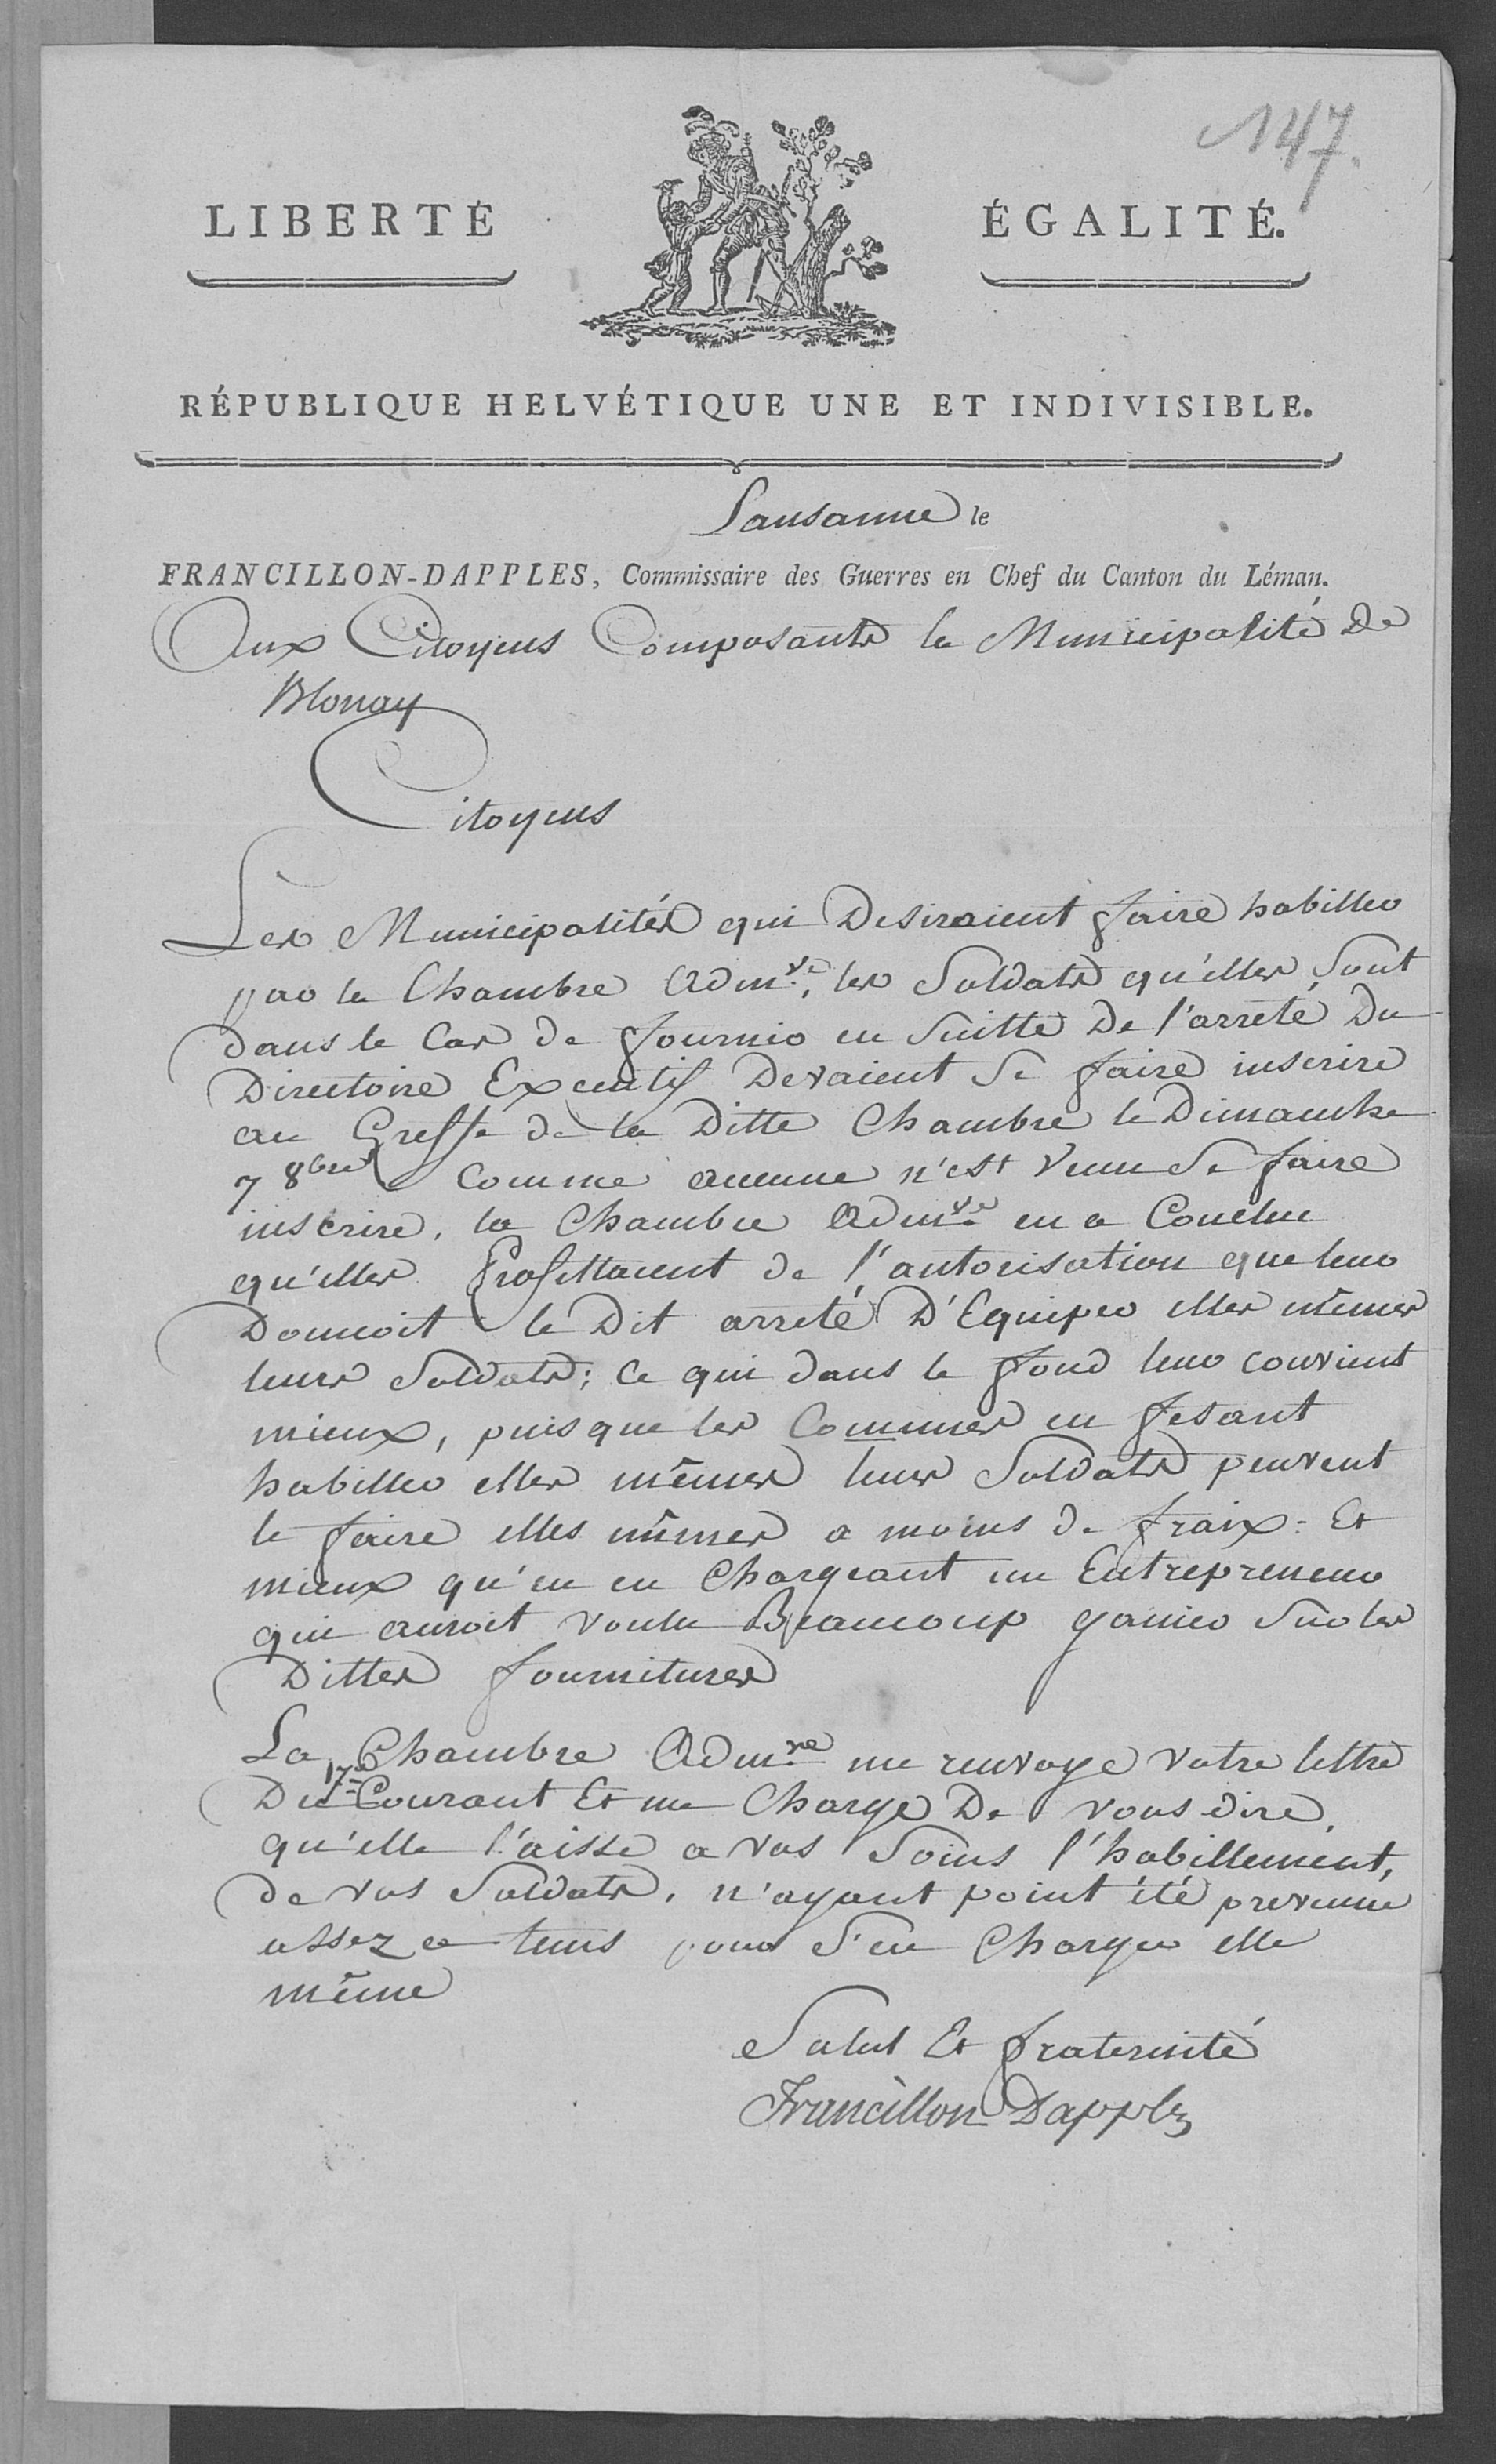 147.
LIBERTÉ
ÉGALITÉ.
RÉPUBLIQUE HELVÉTIQUE UNE ET INDIVISIBLE.
Lausanne le
FRANCILLON-DAPPLES, Commissaire des Guerres en Chef du Canton du Léman.
Aux Citoyens Composants la Municipalité De
Blonay
Citoyens
Les Municipalités qui Desiraient faire habiller
par la Chambre Adm.ve, les Soldats qu'elles sont
dans le Cas de fournir en Suitte De l'arreté Du
Directoire Executif Devaient Se faire inscrire
au Greffe de la Ditte Chambre le Dimanche
7 8bre Comme aucune n'est Venu Se faire
inscrire, la Chambre Adm.ve en a Conclu
qu'elles Profittaient de l'autorisation que leur
Donnoit le Dit arreté D'Equiper elles mêmes
leurs Soldats; Ce qui dans le fond leur convient
mieux, puisque les Communes en fesant
habiller elles mêmes leurs Soldats peuvent
le faire elles mêmes a moins de fraix: Et
mieux qu'en en Chargeant un Entrepreneur
qui auroit voulu Beaucoup gagner Sur les
Dittes fournitures
La Chambre Adm.ve me renvoye votre lettre
Du 17e Courant Et me Charge De vous dire,
qu'elle l'aisse a vos Soins l'habillement,
de vos Soldats, n'ayant point été prevenue
assez a tems pour S'en Charger elle
même
Salut Et fraternité
Francillon Dapples